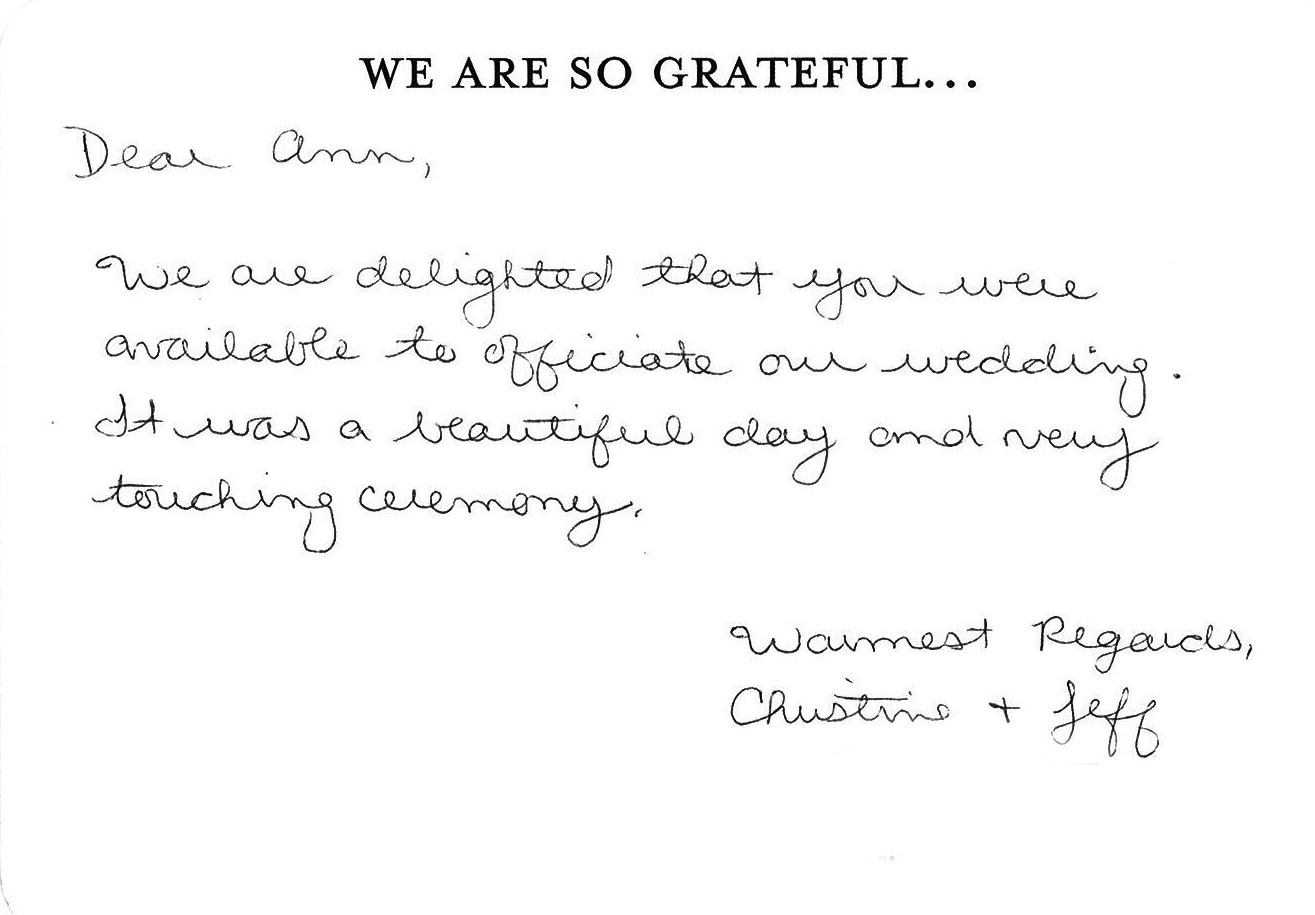 WE ARE SO GRATEFUL...
Dear Ann,
We are delighted that you were
available to officiate our wedding.
It was a beautiful day and very
touching ceremony.
Warmest Regards,
Christine + Jeff